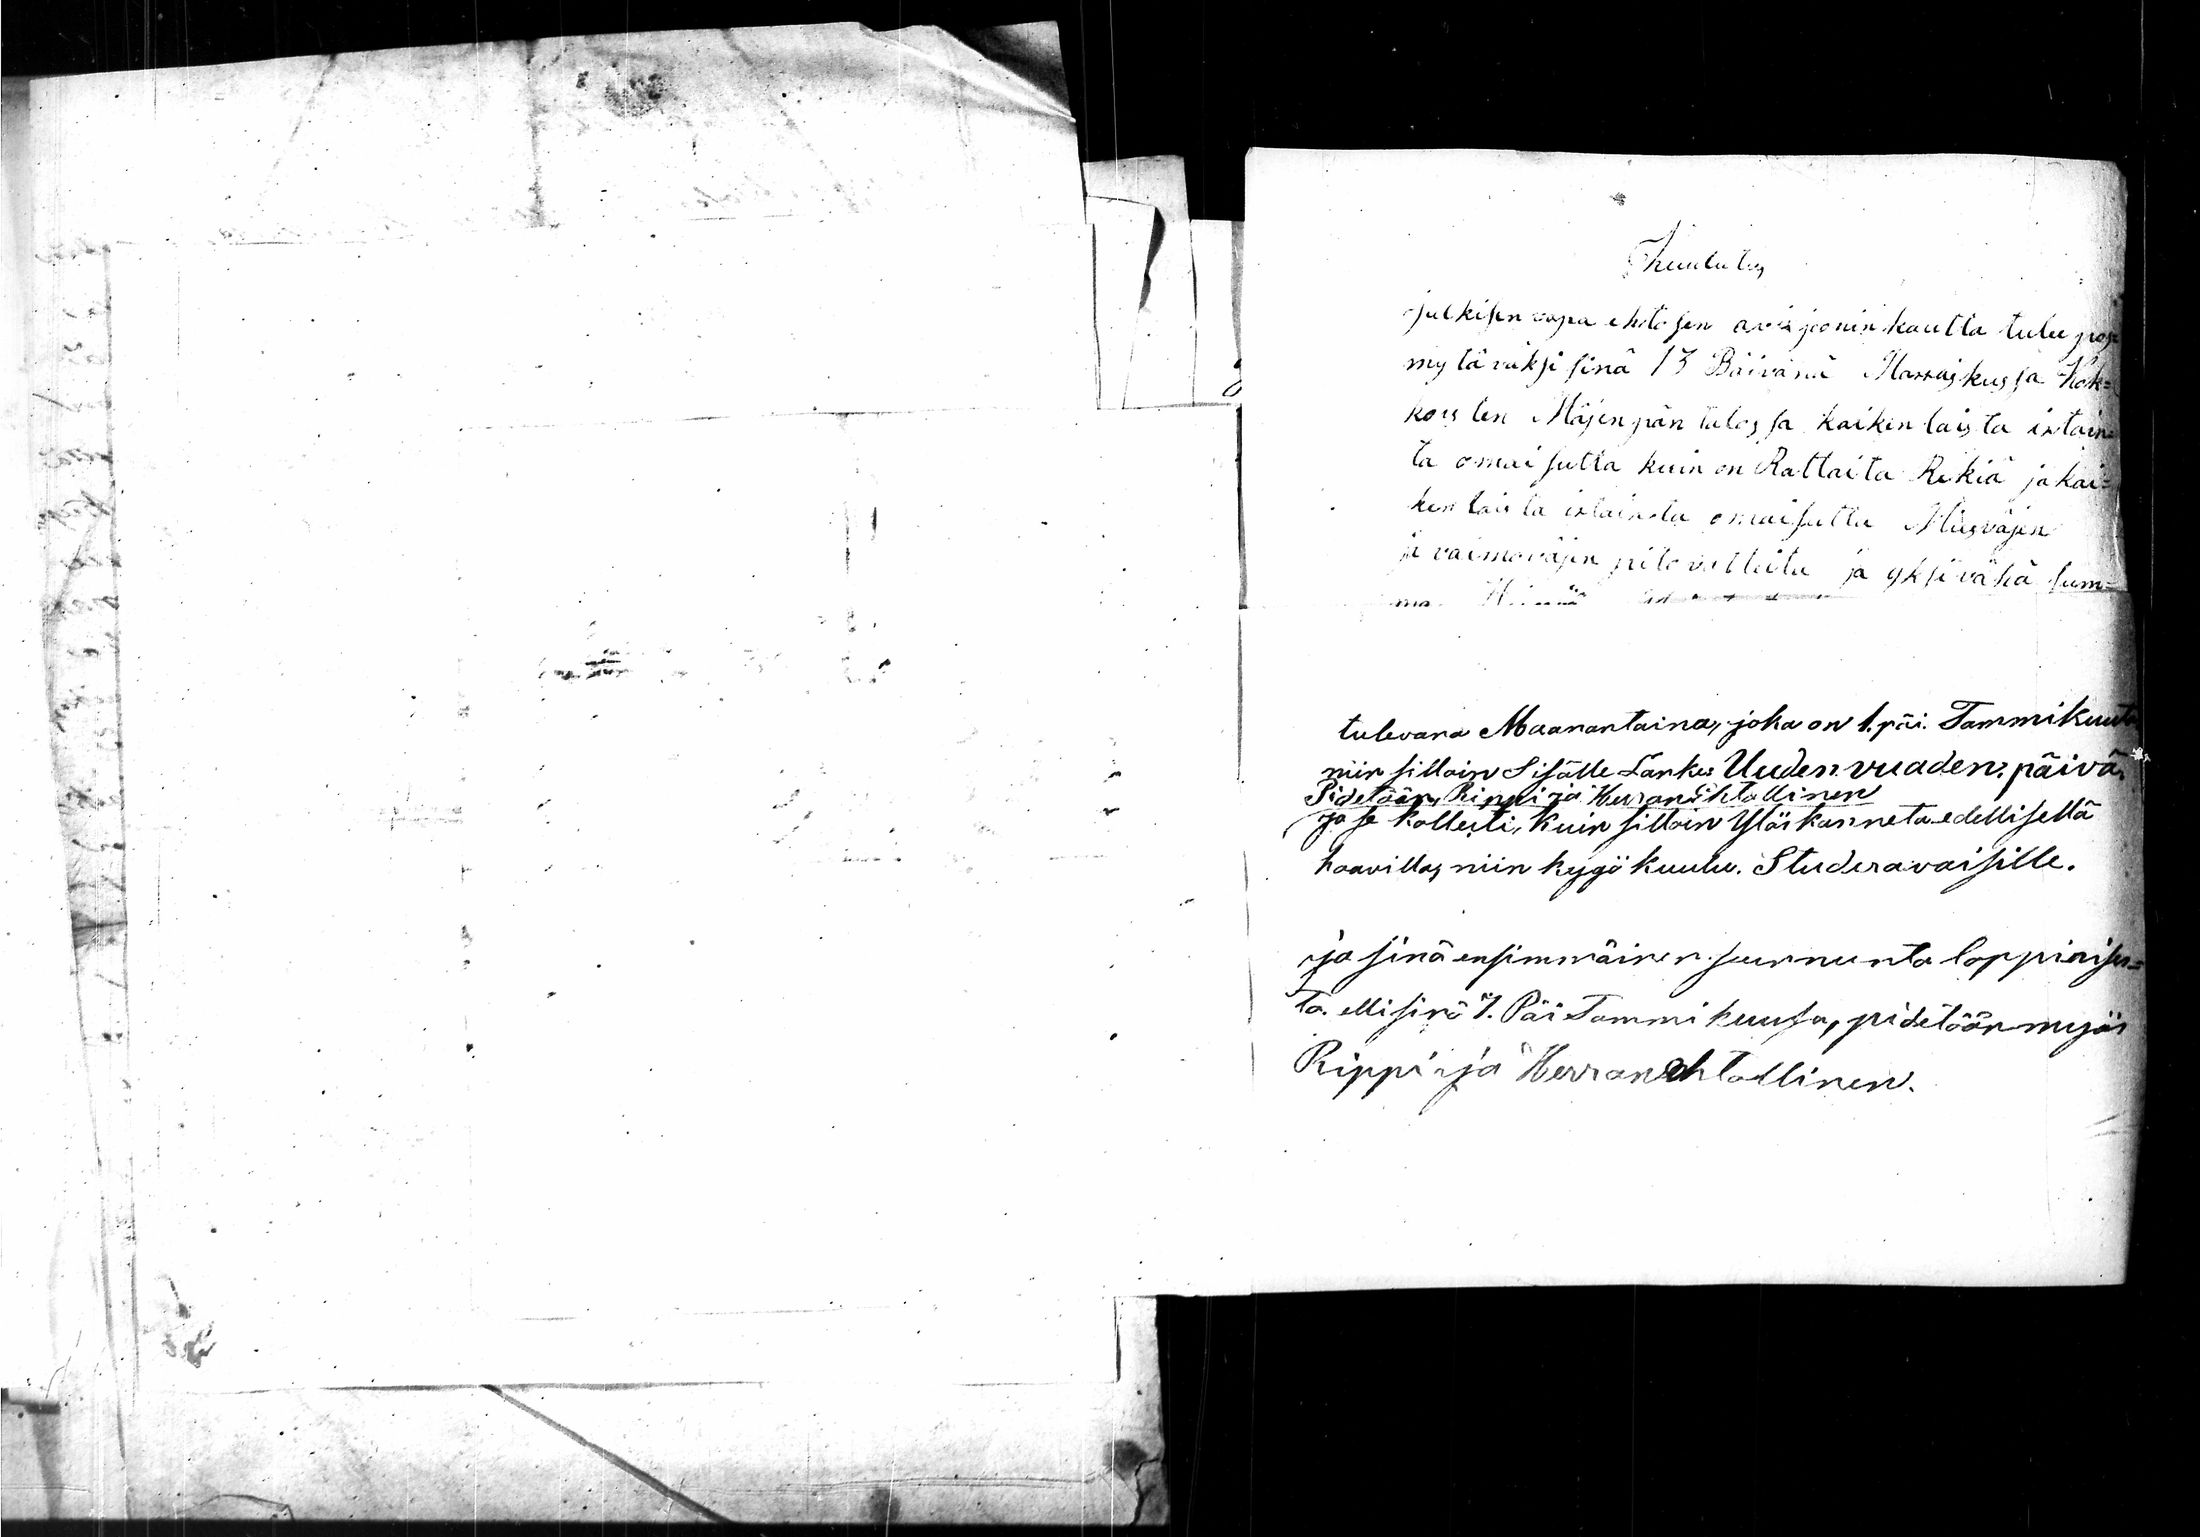 Kuulutus
julkisen vapa ehtosen auxjoonin kautta tulee pois
mytäväksi sinä 13 Päivänä Marraskussa Kok=
koisten Mäjenpän talossa kaiken laista irtain
ta omaisutta kuin on Rattaita Rekiä ja kai=
ken laista irtainta omaisutta Miesväjen
ja vaimoväjen pitovatteita ja yksi vähä sum=
ma
tulevana Maanantaina, joka on 1. päi. Tammikuuta
niin silloin Sisälle Lankee Uuden vuoden päivä,
Pidetään, Rippi ja Herran Ehtollinen
ja se kollecti, kuin silloin Ylöskanneta edellisellä
haavilla, niin kygö kuulu. Studeravaisille.
ja sinä ensimmäinen sunnunta loppiaises=
ta. elli sinä 7. Päi Tammikuusa, pidetään myös
Rippi ja Herran ehtollinen.